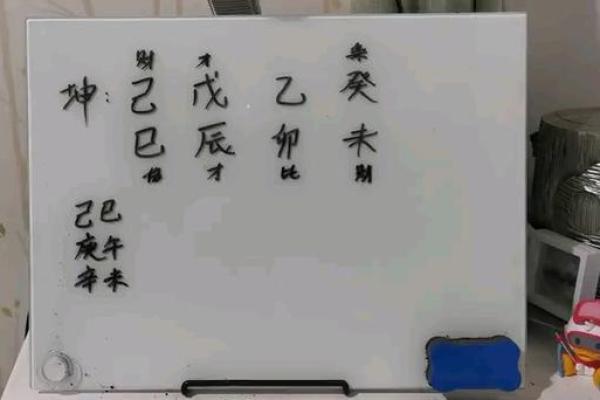 财 才 枭
坤: 己 戊 乙 癸
巳 辰 卯 未
伤 才 比 财
己巳
庚午
辛未